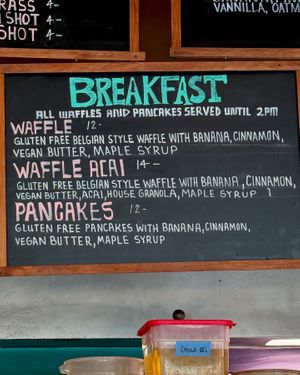 RASS 4-
SHOT 4-
SHOT 4-
VANNILLA, OATM
BREAKFAST
ALL WAFFLES AND PANCAKES SERVED UNTIL 2PM
WAFFLE 12-
GLUTEN FREE BELGIAN STYLE WAFFLE WITH BANANA, CINNAMON,
VEGAN BUTTER, MAPLE SYRUP
WAFFLE ACAI 14-
GLUTEN FREE BELGIAN STYLE WAFFLE WITH BANANA, CINNAMON,
VEGAN BUTTER, ACAI, HOUSE GRANOLA, MAPLE SYRUP
PANCAKES 12-
GLUTEN FREE PANCAKES WITH BANANA, CINNAMON,
VEGAN BUTTER, MAPLE SYRUP